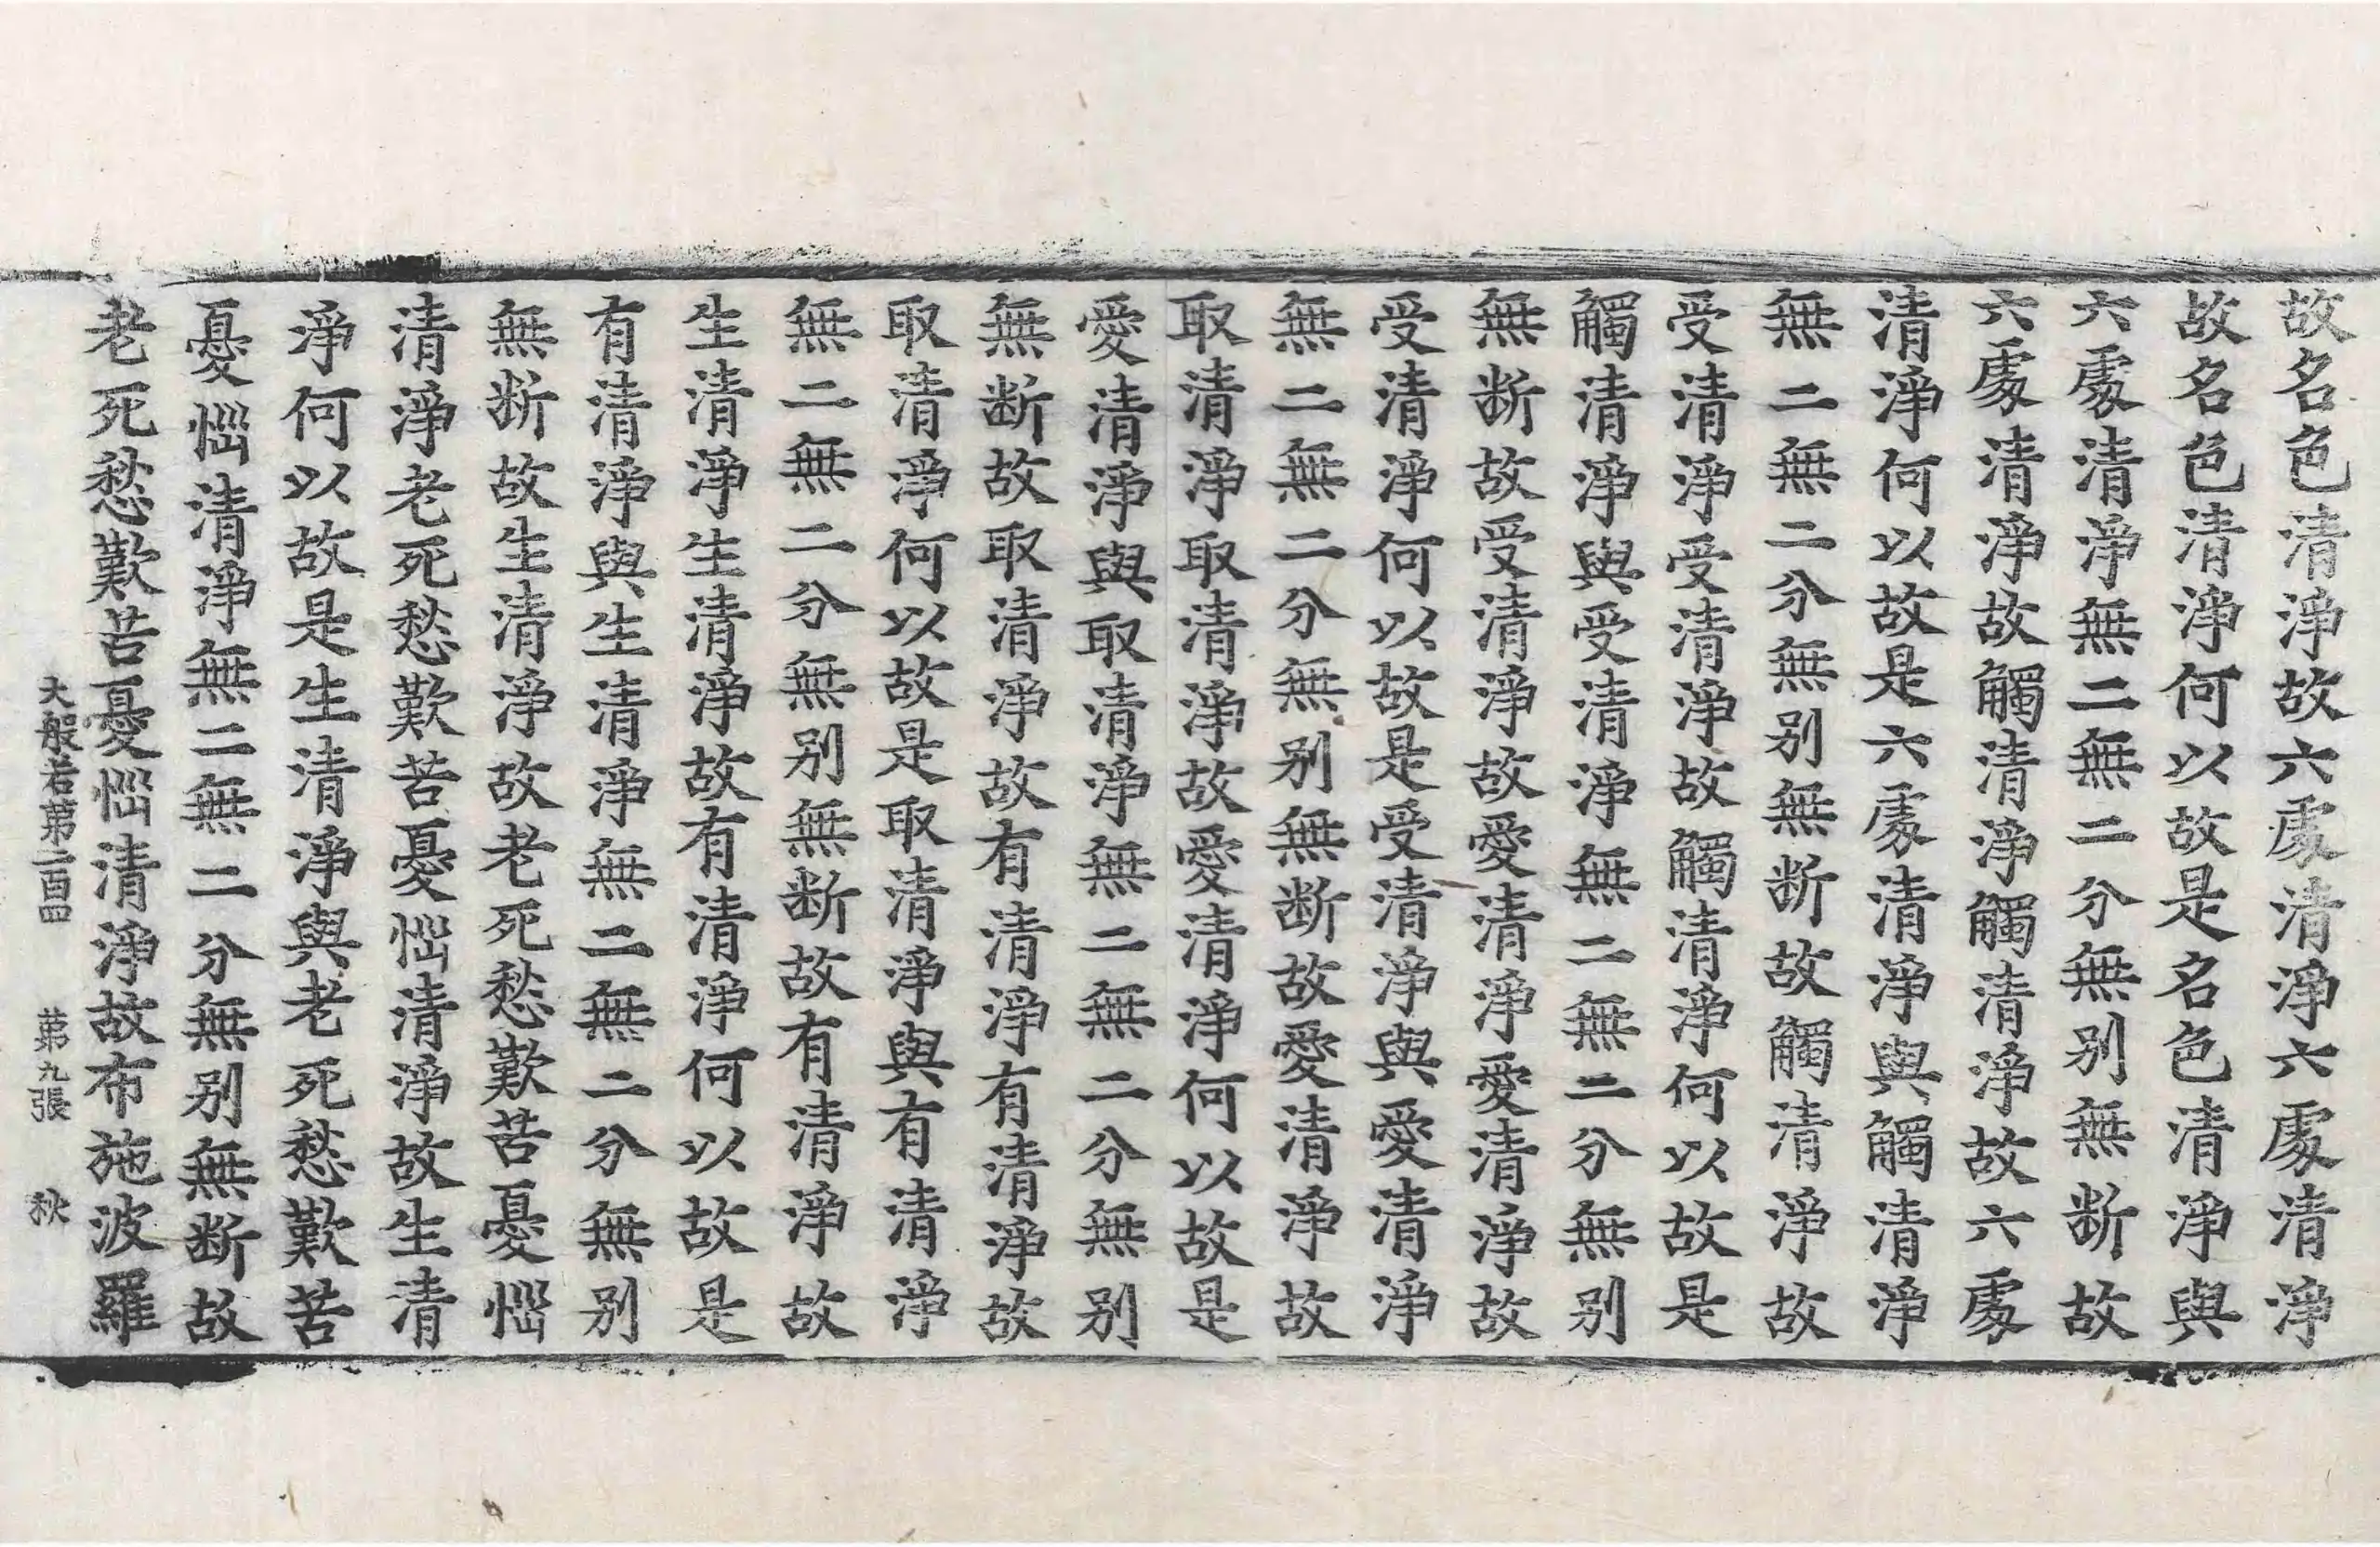 故名色清淨故六處清淨六處清淨
故名色清淨何以故是名色清淨與
六處清淨無二無二分無别無断故
六處清淨故觸清淨觸清淨故六處
清淨何以故是六處清淨與觸清淨
無二無二分無别無断故觸清淨故
受清淨受清淨故觸清淨何以故是
觸清淨與受清淨無二無二分無别
無断故受清淨故愛清淨愛清淨故
受清淨何以故是受清淨與愛清淨
無二無二分無别無断故愛清淨故
取清淨取清淨故愛清淨何以故是
愛清淨與取清淨無二無二分無别
無断故取清淨故有清淨有清淨故
取清淨何以故是取清淨與有清淨
無二無二分無别無断故有清淨故
生清淨生清淨故有清淨何以故是
有清淨與生清淨無二無二分無别
無断故生清淨故老死愁歎苦憂惱
清淨老死愁歎苦憂惱清淨故生清
淨何以故是生清淨與老死愁歎苦
憂惱清淨無二無二分無别無断故
老死愁歎苦憂惱清淨故布施波羅
大般若第二百四 第九張 秋